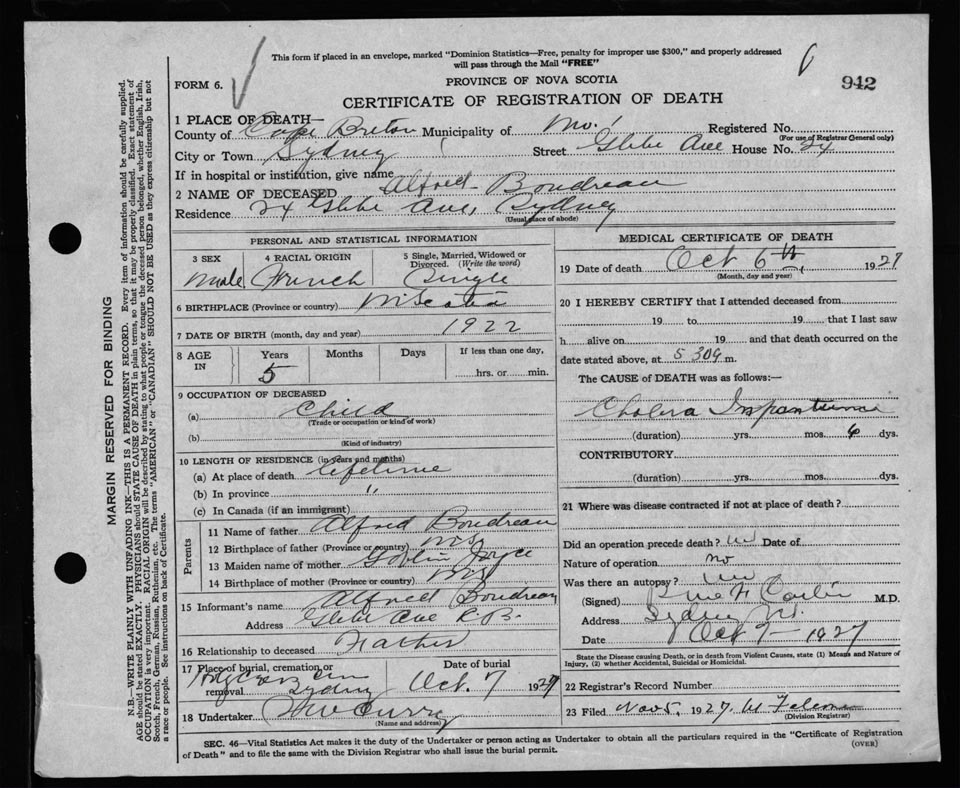 This form if placed in an envelope, marked "Dominion Statistics—Free, penalty for improper use $300," and properly addressed
will pass through the Mail "FREE"
FORM 6.
PROVINCE OF NOVA SCOTIA
942
CERTIFICATE OF REGISTRATION OF DEATH
1 PLACE OF DEATH—
County of Cape Breton Municipality of Registered No.
(For use of Registrar General only)
City or Town Sydney Street Glebe Ave House No. 24
If in hospital or institution, give name
2 NAME OF DECEASED Alfred Boudreau
Residence 24 Glebe Ave, Sydney
(Usual place of abode)
PERSONAL AND STATISTICAL INFORMATION
3 SEX 4 RACIAL ORIGIN 5 Single, Married, Widowed or
Divorced. (Write the word)
Male French Single
6 BIRTHPLACE (Province or country) N. Scotia
7 DATE OF BIRTH (month, day and year) 1922
8 AGE IN Years Months Days If less than one day,
5 hrs. or min.
9 OCCUPATION OF DECEASED
(a) Child
(Trade or occupation or kind of work)
(b)
(Kind of industry)
10 LENGTH OF RESIDENCE (in years and months)
(a) At place of death lifetime
(b) In province "
(c) In Canada (if an immigrant)
Parents
11 Name of father Alfred Boudreau
12 Birthplace of father (Province or country) NS
13 Maiden name of mother Joyce
14 Birthplace of mother (Province or country) NS
15 Informant's name Alfred Boudreau
Address Glebe Ave C.B.
16 Relationship to deceased Father
17 Place of burial, cremation or removal Sydney
Date of burial Oct. 7 1927
18 Undertaker Curry
(Name and address)
MEDICAL CERTIFICATE OF DEATH
19 Date of death Oct 6th, 1927
(Month, day and year)
20 I HEREBY CERTIFY that I attended deceased from
19 to 19 that I last saw
h alive on 19 and that death occurred on the
date stated above, at 5 30 a m.
The CAUSE of DEATH was as follows:—
Cholera
(duration) yrs. mos. 6 dys.
CONTRIBUTORY
(duration) yrs. mos. dys.
21 Where was disease contracted if not at place of death?
Did an operation precede death? no Date of
Nature of operation no
Was there an autopsy? no
(Signed) M.D.
Address Sydney N.S.
Date Oct 7 — 1927
State the Disease causing Death, or in death from Violent Causes, state (1) Means and Nature of
Injury, (2) whether Accidental, Suicidal or Homicidal.
22 Registrar's Record Number
23 Filed Nov 5, 1927.
(Division Registrar)
SEC. 46—Vital Statistics Act makes it the duty of the Undertaker or person acting as Undertaker to obtain all the particulars required in the "Certificate of Registration
of Death" and to file the same with the Division Registrar who shall issue the burial permit.
(OVER)
MARGIN RESERVED FOR BINDING
N.B.—WRITE PLAINLY WITH UNFADING INK—THIS IS A PERMANENT RECORD. Every item of information should be carefully supplied.
AGE should be stated EXACTLY. PHYSICIANS should STATE CAUSE OF DEATH in plain terms, so that it may be properly classified. Exact statement of
OCCUPATION is very important. RACIAL ORIGIN will be described by stating to what people or tongue the deceased person belonged, whether English, Irish,
Scotch, French, German, Russian, Ruthenian, etc. The terms "AMERICAN" or "CANADIAN" SHOULD NOT BE USED as they express citizenship but not
a race or people. See instructions on back of Certificate.